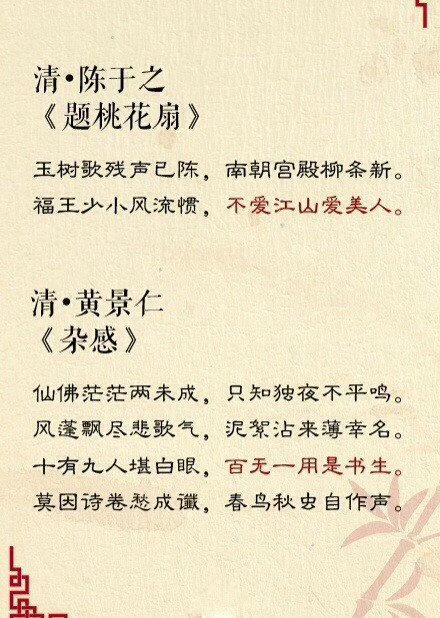 清·陈于之
《题桃花扇》
玉树歌残声已陈，南朝宫殿柳条新。
福王少小风流惯，不爱江山爱美人。
清·黄景仁
《杂感》
仙佛茫茫两未成，只知独夜不平鸣。
风蓬飘尽悲歌气，泥絮沾来薄幸名。
十有九人堪白眼，百无一用是书生。
莫因诗卷愁成谶，春鸟秋虫自作声。